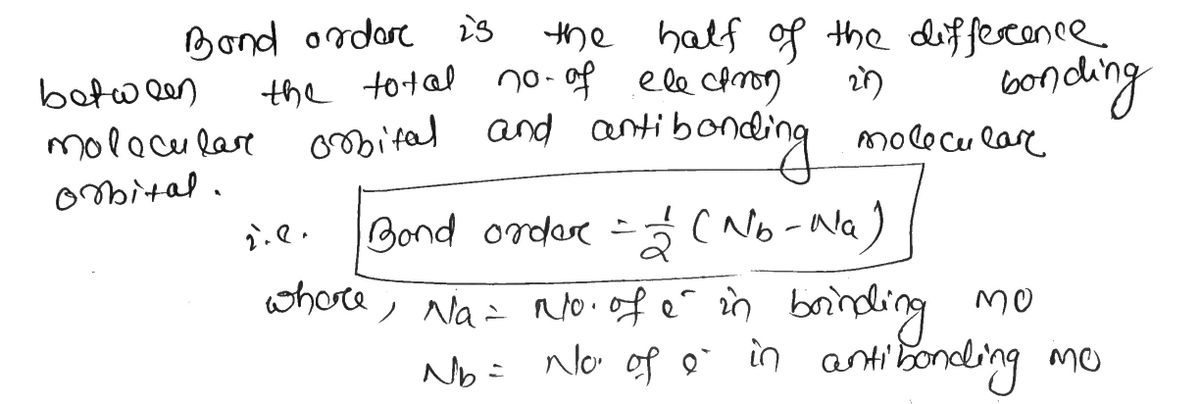 Bond order is the half of the difference
between the total no. of electron in bonding
molecular orbital and antibonding molecular
orbital.
i.e. Bond order = 1/2 (Nb - Na)
where, Na = No. of e⁻ in boinding MO
Nb = No. of e⁻ in antibonding MO